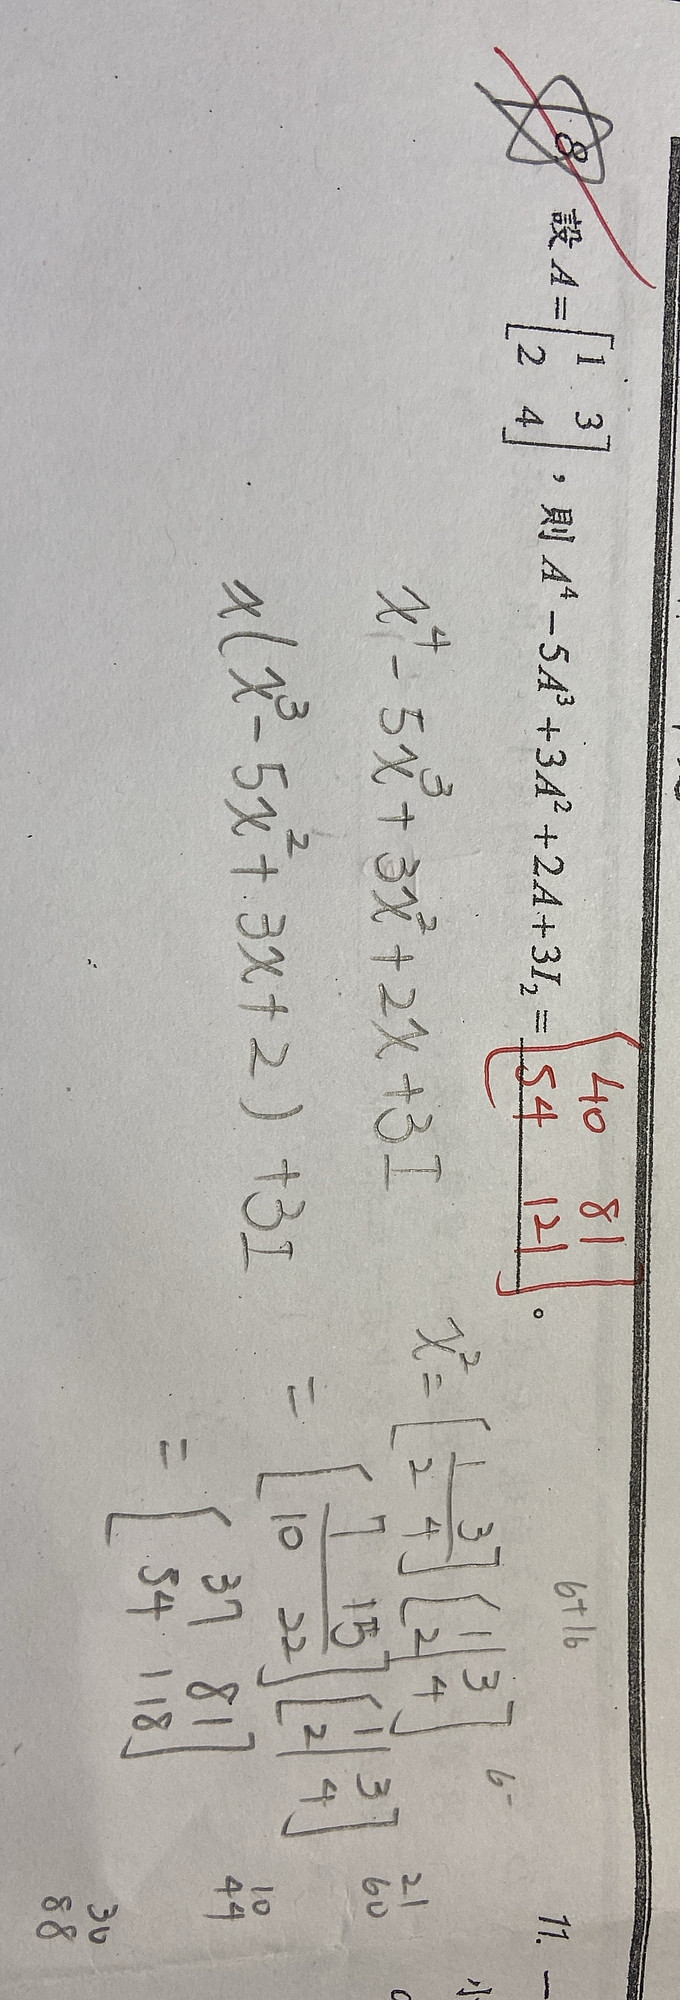 8 設 A = [1 3
2 4] , 則 A⁴ − 5A³ + 3A² + 2A + 3I₂ = [40 81
54 121] 。
x⁴ − 5x³ + 3x² + 2x + 3I
x(x³ − 5x² + 3x + 2) + 3I
x² = [1 3
2 4] [1 3
2 4]
= [7 15
10 22] [1 3
2 4]
= [37 81
54 118]
6+16
6-
21
60
10
44
30
88
11. 一